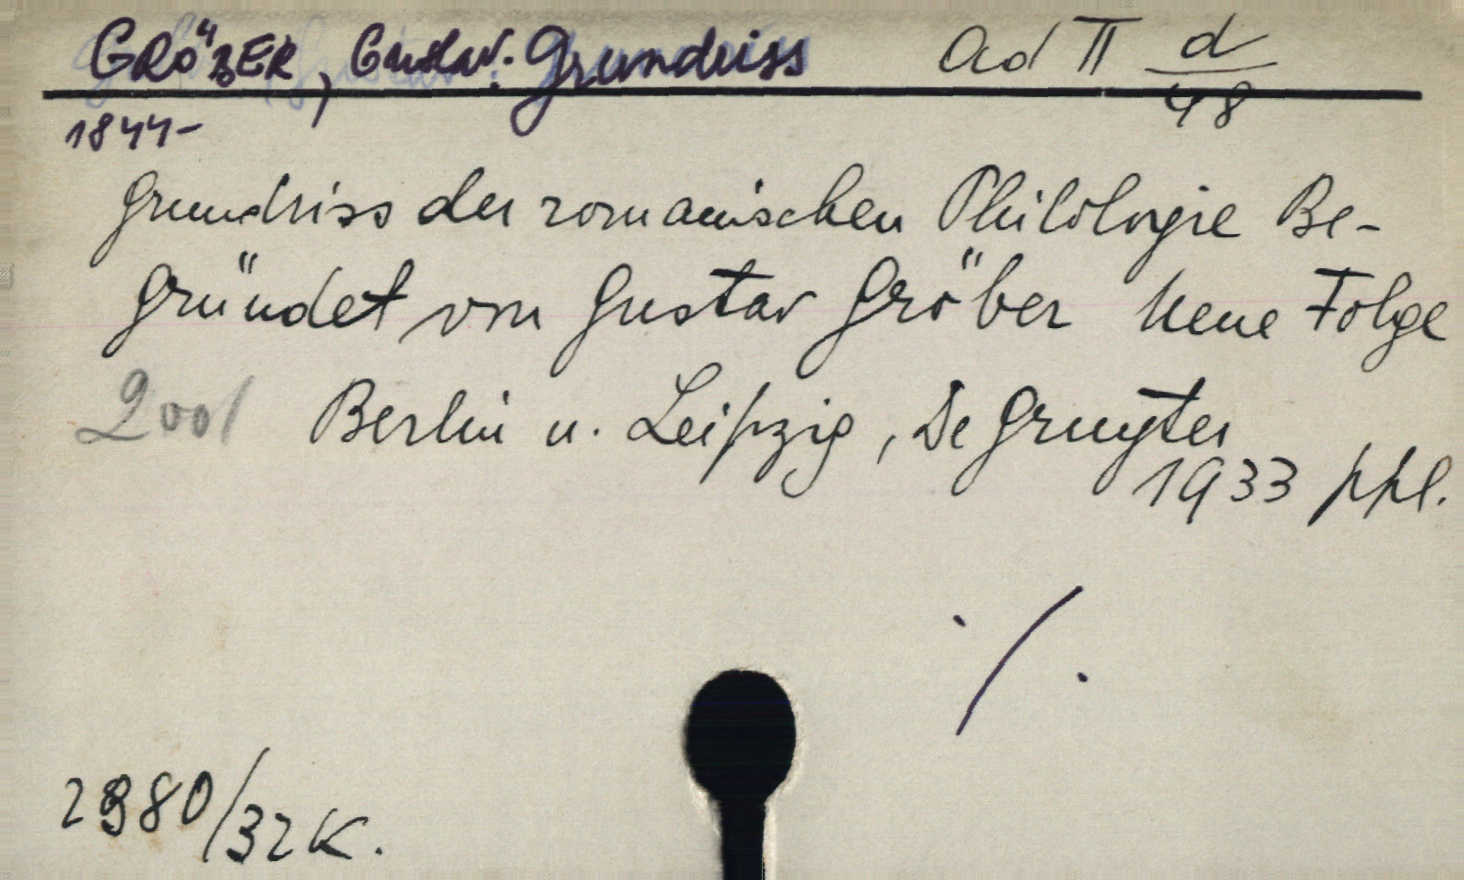 GRÖBER, Gustav. Grundriss ad II d/48
1844-
Grundriss der romanischen Philologie Be-
gründet von Gustav Gröber Neue Folge
2001 Berlin u. Leipzig, De Gruyter
1933 ppl.
./.
2980/32K.